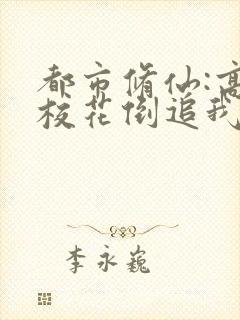 都市脩仙:高
校花倒追我
李永巍